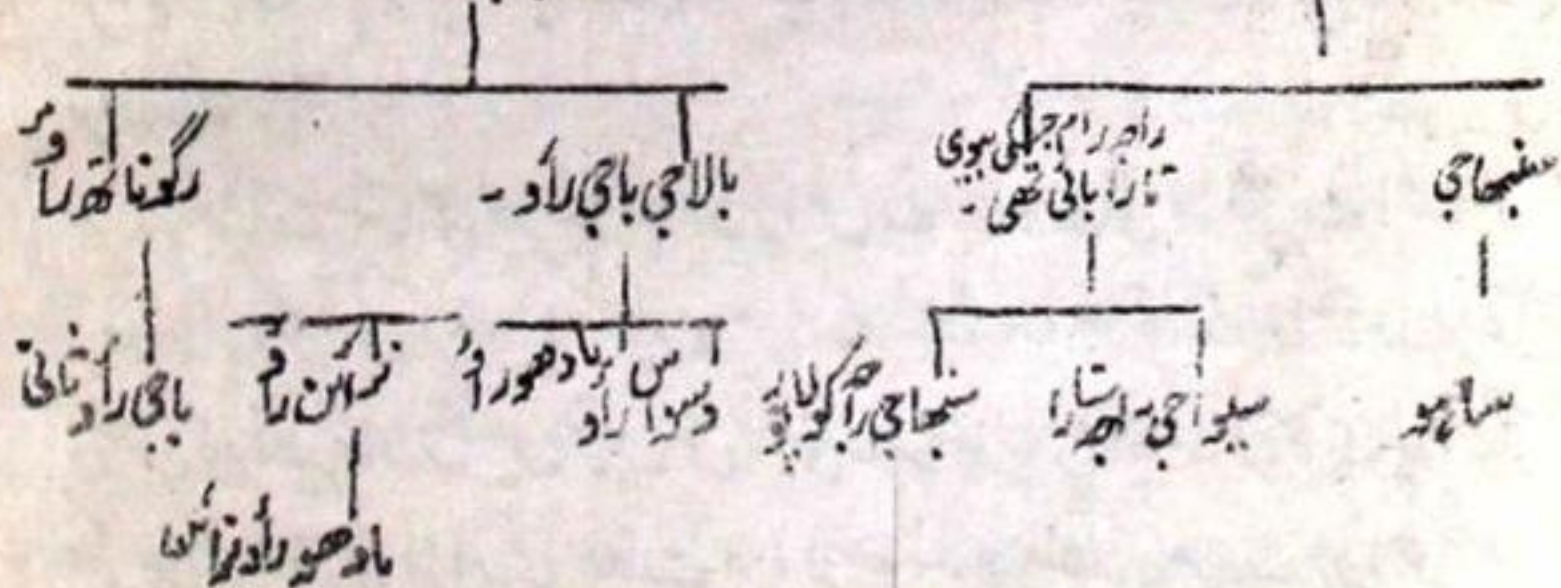 سنبھاجی
راجہ رام جسکی بیوی
تارا بائی تھی۔
بالاجی باجی راؤ۔
رگوناتھ راؤ
ساہو
سیواجی راجہ ستارا
سنبھاجی راجہ کولاپور
وسواس راؤ
مادھو راؤ
نرائن راؤ
باجی راؤ ثانی
مادھو راؤ نرائن